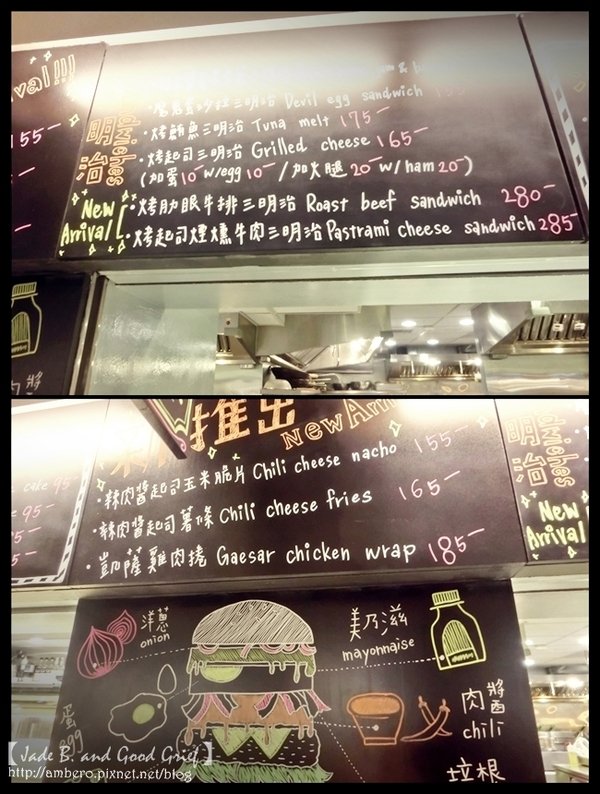 val!!!
155-
Devil egg sandwich 155-
•烤鮪魚三明治 Tuna melt 175-
•烤起司三明治 Grilled cheese 165-
(加蛋10- w/egg 10- /加火腿20- w/ham 20-)
明治
dwiches
New Arrival
•烤肋眼牛排三明治 Roast beef sandwich 280-
•烤起司煙燻牛肉三明治 Pastrami cheese sandwich 285-
推出
New Arri
•辣肉醬起司玉米脆片 Chili cheese nacho 155-
•辣肉醬起司薯條 Chili cheese fries 165-
•凱薩雞肉捲 Gaesar chicken wrap 185-
cake 95-
明治
dwiches
New Arrival
洋蔥
onion
美乃滋
mayonnaise
蛋
egg
肉醬
chili
培根
【Jade B. and Good Grief】
http://ambero.pixnet.net/blog